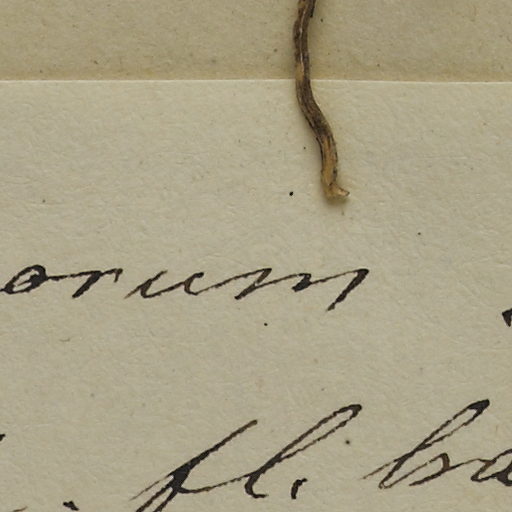 orum
fl. ba